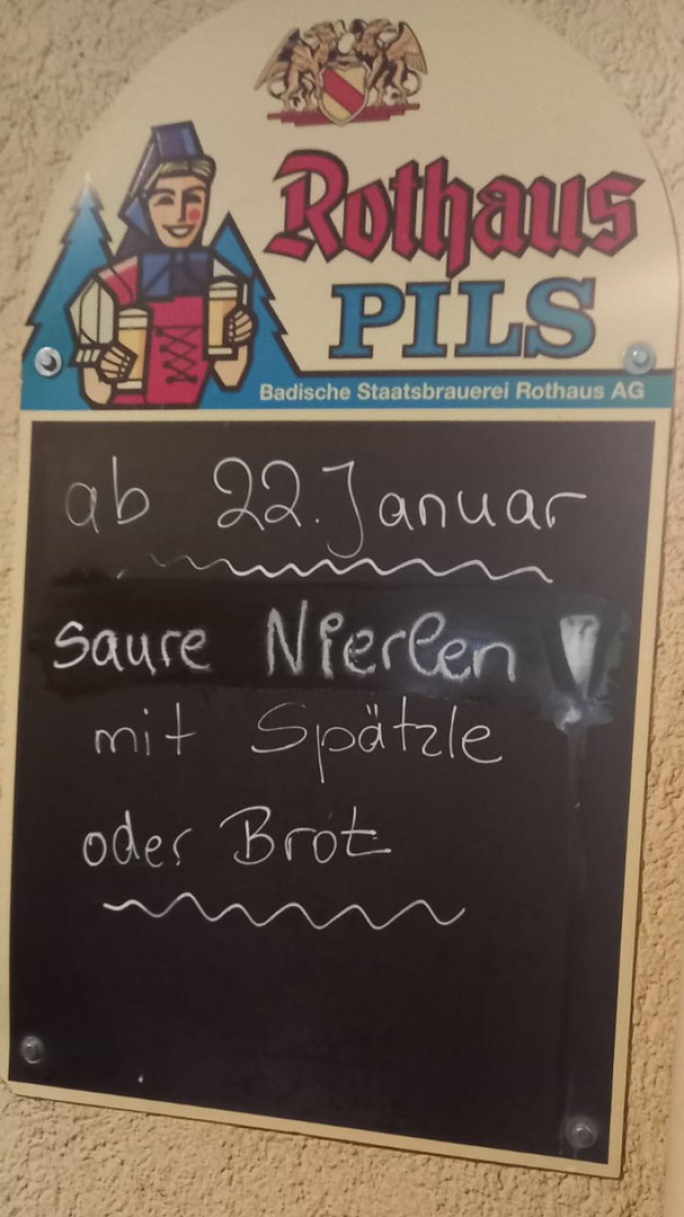 Rothaus
PILS
Badische Staatsbrauerei Rothaus AG
ab 22. Januar
saure Nierlen
mit Spätzle
oder Brot